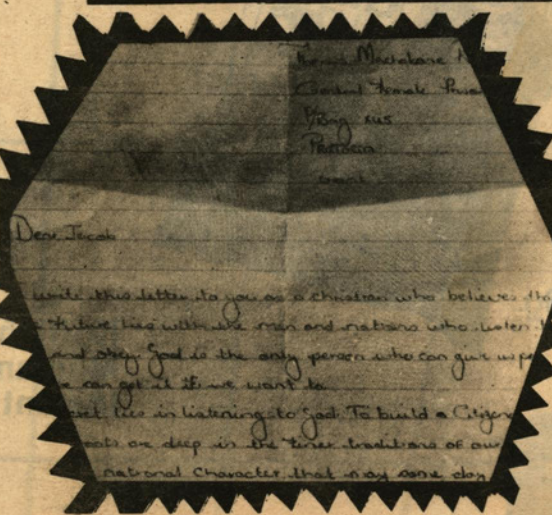 Theresa Machabane
Central Female Prison
P/Bag X45
Pretoria
0001
Dear Jacob
write this letter to you as a christian who believes tha
future lies with the men and nations who listen t
and obey. God is the only person who can give us pe
we can get it if we want to.
ecret lies in listening to God. To build a Citizen
roots are deep in the finer traditions of our
national Character that may some day